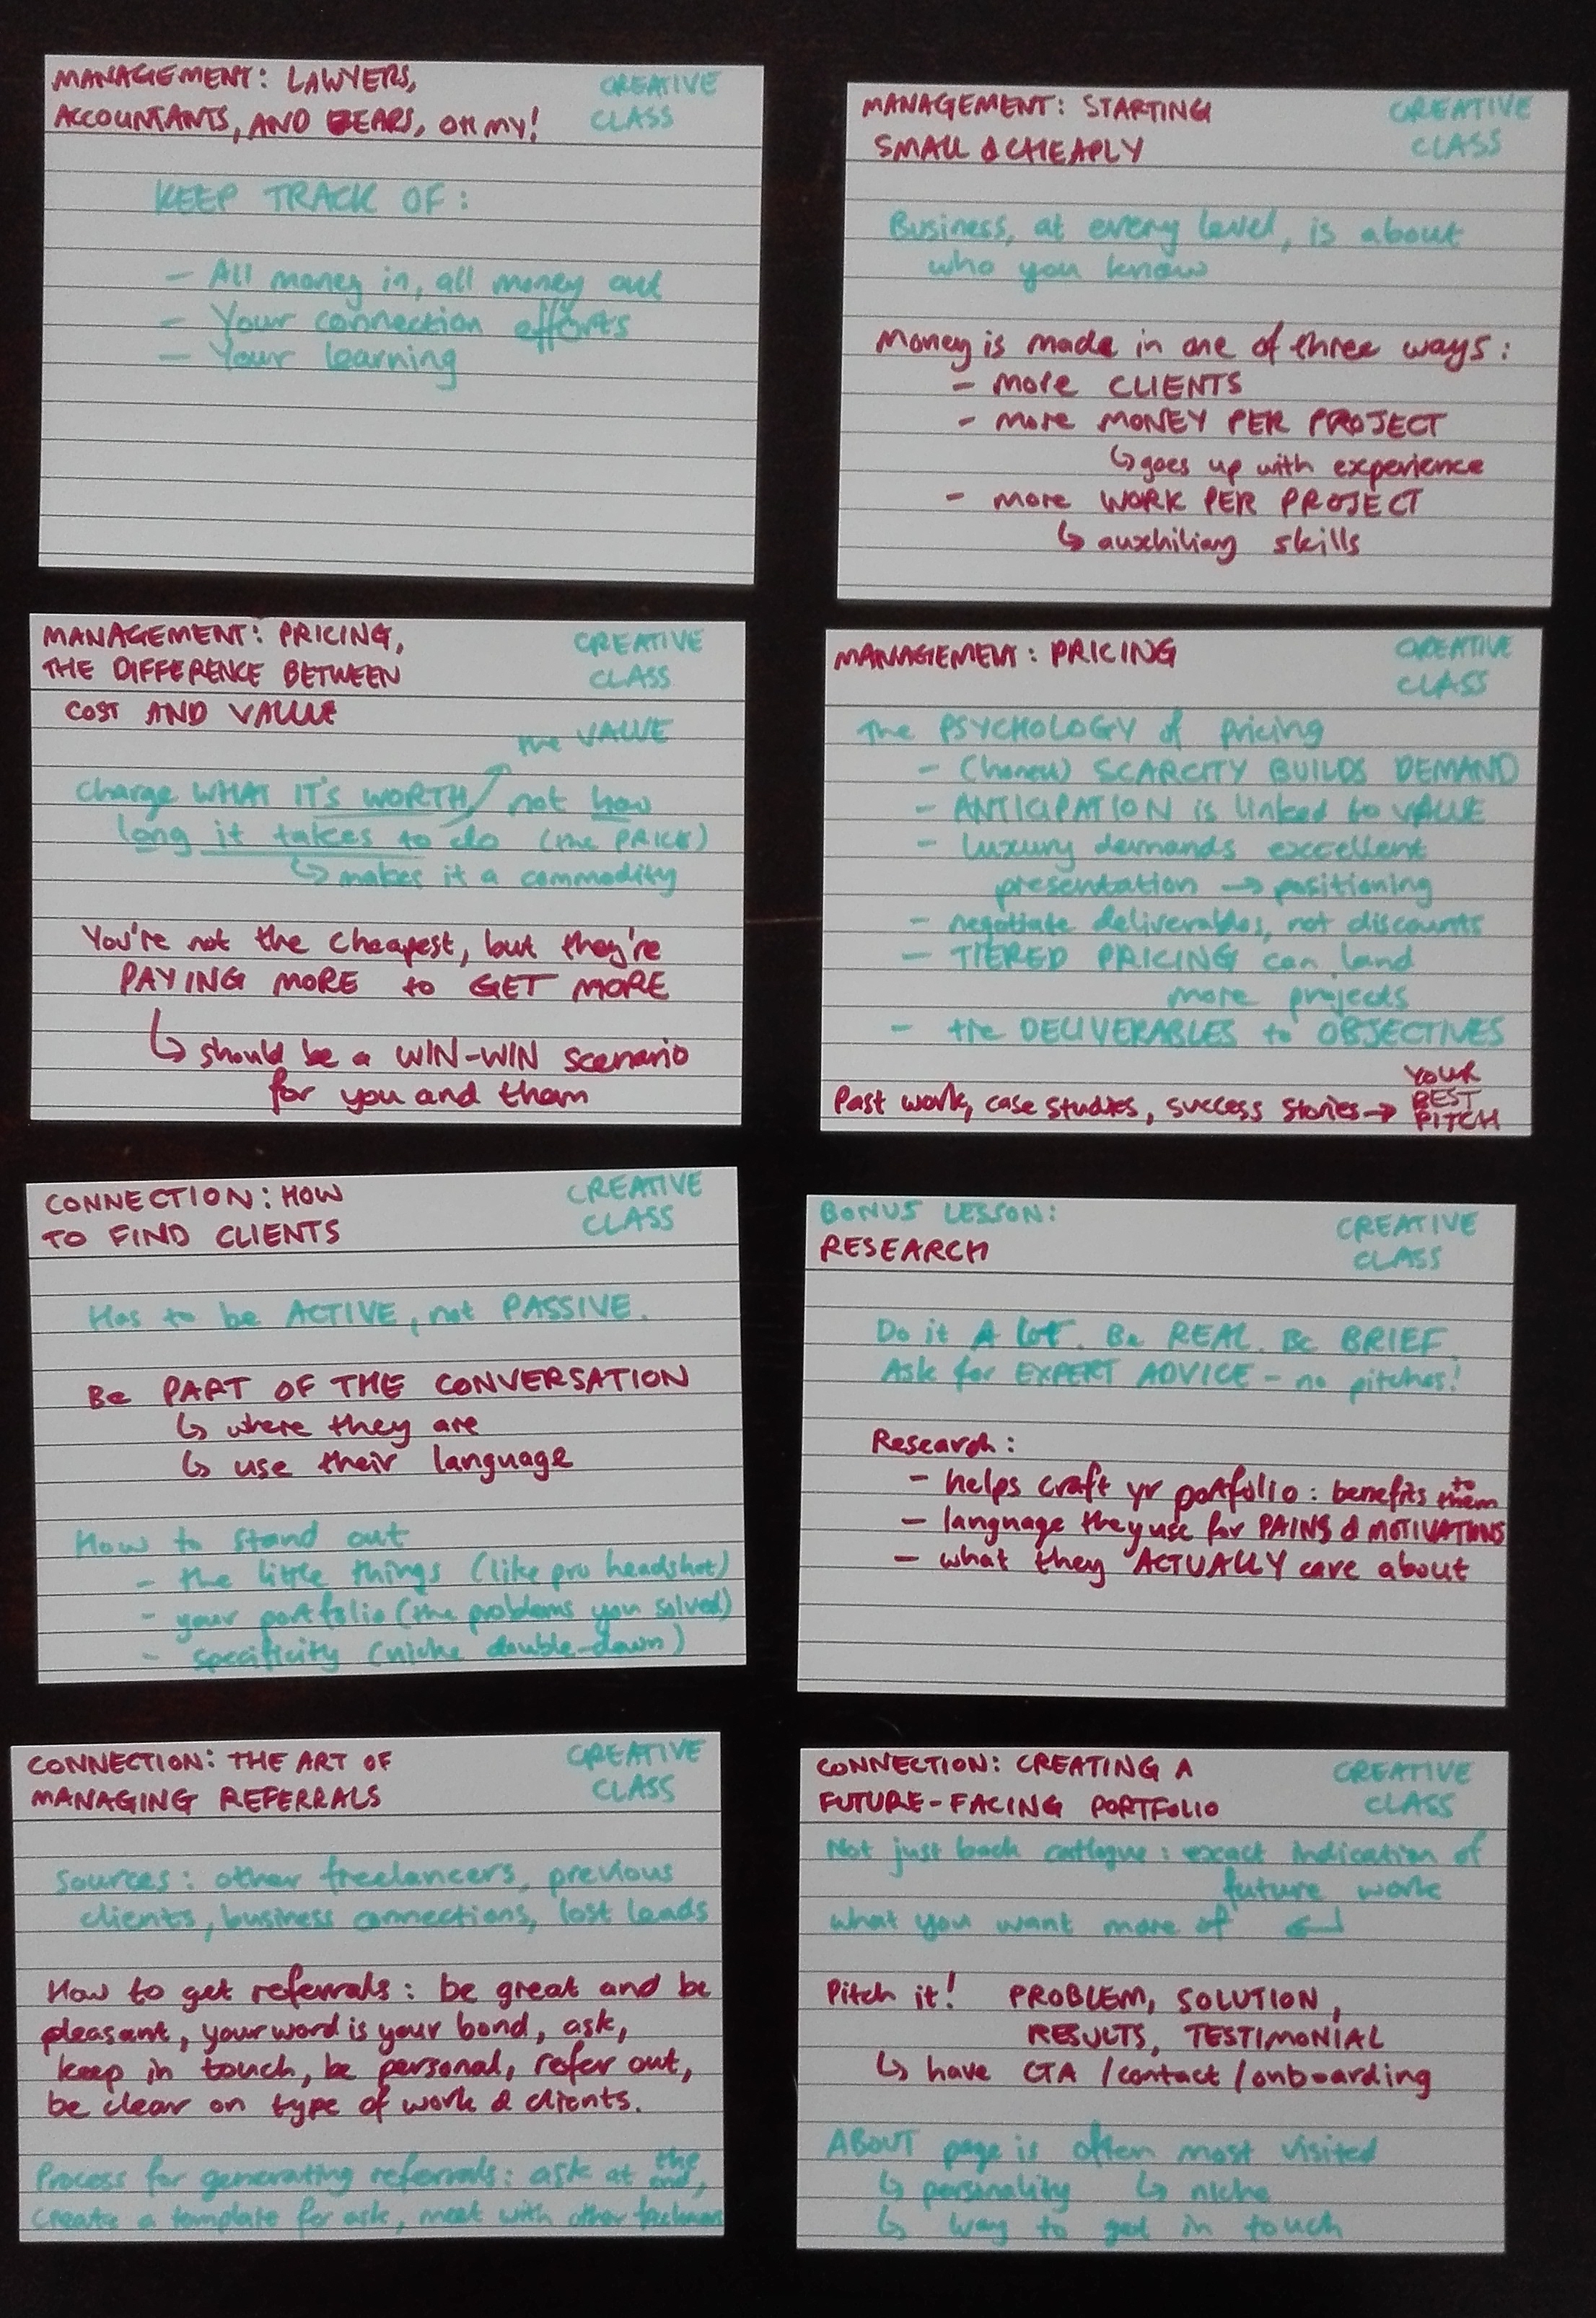 MANAGEMENT: LAWYERS,
ACCOUNTANTS, AND BEARS, OH MY!
CREATIVE
CLASS
KEEP TRACK OF:
- All money in, all money out
- Your connection efforts
- Your learning
MANAGEMENT: STARTING
SMALL & CHEAPLY
CREATIVE
CLASS
Business, at every level, is about
who you know
Money is made in one of three ways:
- more CLIENTS
- more MONEY PER PROJECT
↳ goes up with experience
- more WORK PER PROJECT
↳ auxhiliary skills
MANAGEMENT: PRICING,
THE DIFFERENCE BETWEEN
COST AND VALUE
CREATIVE
CLASS
the VALUE
Charge WHAT IT'S WORTH not how
long it takes to do (the PRICE)
↳ makes it a commodity
You're not the cheapest, but they're
PAYING MORE to GET MORE
↳ should be a WIN-WIN scenario
for you and them
MANAGEMENT: PRICING
CREATIVE
CLASS
The PSYCHOLOGY of pricing
- (honest) SCARCITY BUILDS DEMAND
- ANTICIPATION is linked to VALUE
- luxury demands excellent
presentation → positioning
- negotiate deliverables, not discounts
- TIERED PRICING can land
more projects
- tie DELIVERABLES to OBJECTIVES
Past work, case studies, success stories → YOUR
BEST
PITCH
CONNECTION: HOW
TO FIND CLIENTS
CREATIVE
CLASS
Has to be ACTIVE, not PASSIVE.
Be PART OF THE CONVERSATION
↳ where they are
↳ use their language
How to stand out
- the little things (like pro headshot)
- your portfolio (the problems you solved)
- specificity (niche double-down)
BONUS LESSON:
RESEARCH
CREATIVE
CLASS
Do it A lot. Be REAL. Be BRIEF.
Ask for EXPERT ADVICE - no pitches!
Research:
- helps craft yr portfolio: benefits to them
- language they use for PAINS & MOTIVATIONS
- what they ACTUALLY care about
CONNECTION: THE ART OF
MANAGING REFERRALS
CREATIVE
CLASS
Sources: other freelancers, previous
clients, business connections, lost leads
How to get referrals: be great and be
pleasant, your word is your bond, ask,
keep in touch, be personal, refer out,
be clear on type of work & clients.
Process for generating referrals: ask at the end,
create a template for ask, meet with other
CONNECTION: CREATING A
FUTURE-FACING PORTFOLIO
CREATIVE
CLASS
Not just back catlogue: exact indication of
future work
what you want more of ↵
Pitch it! PROBLEM, SOLUTION,
RESULTS, TESTIMONIAL
↳ have CTA / contact / onboarding
ABOUT page is often most visited
↳ personality ↳ niche
↳ way to get in touch